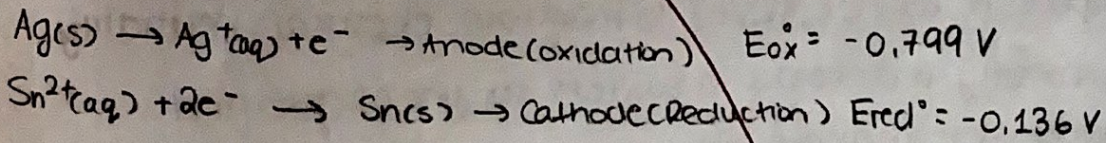 Ag(s) → Ag⁺(aq) + e⁻ → Anode (oxidation) Eox° = -0.799 V
Sn²⁺(aq) + 2e⁻ → Sn(s) → Cathode (Reduction) Ered° = -0.136 V